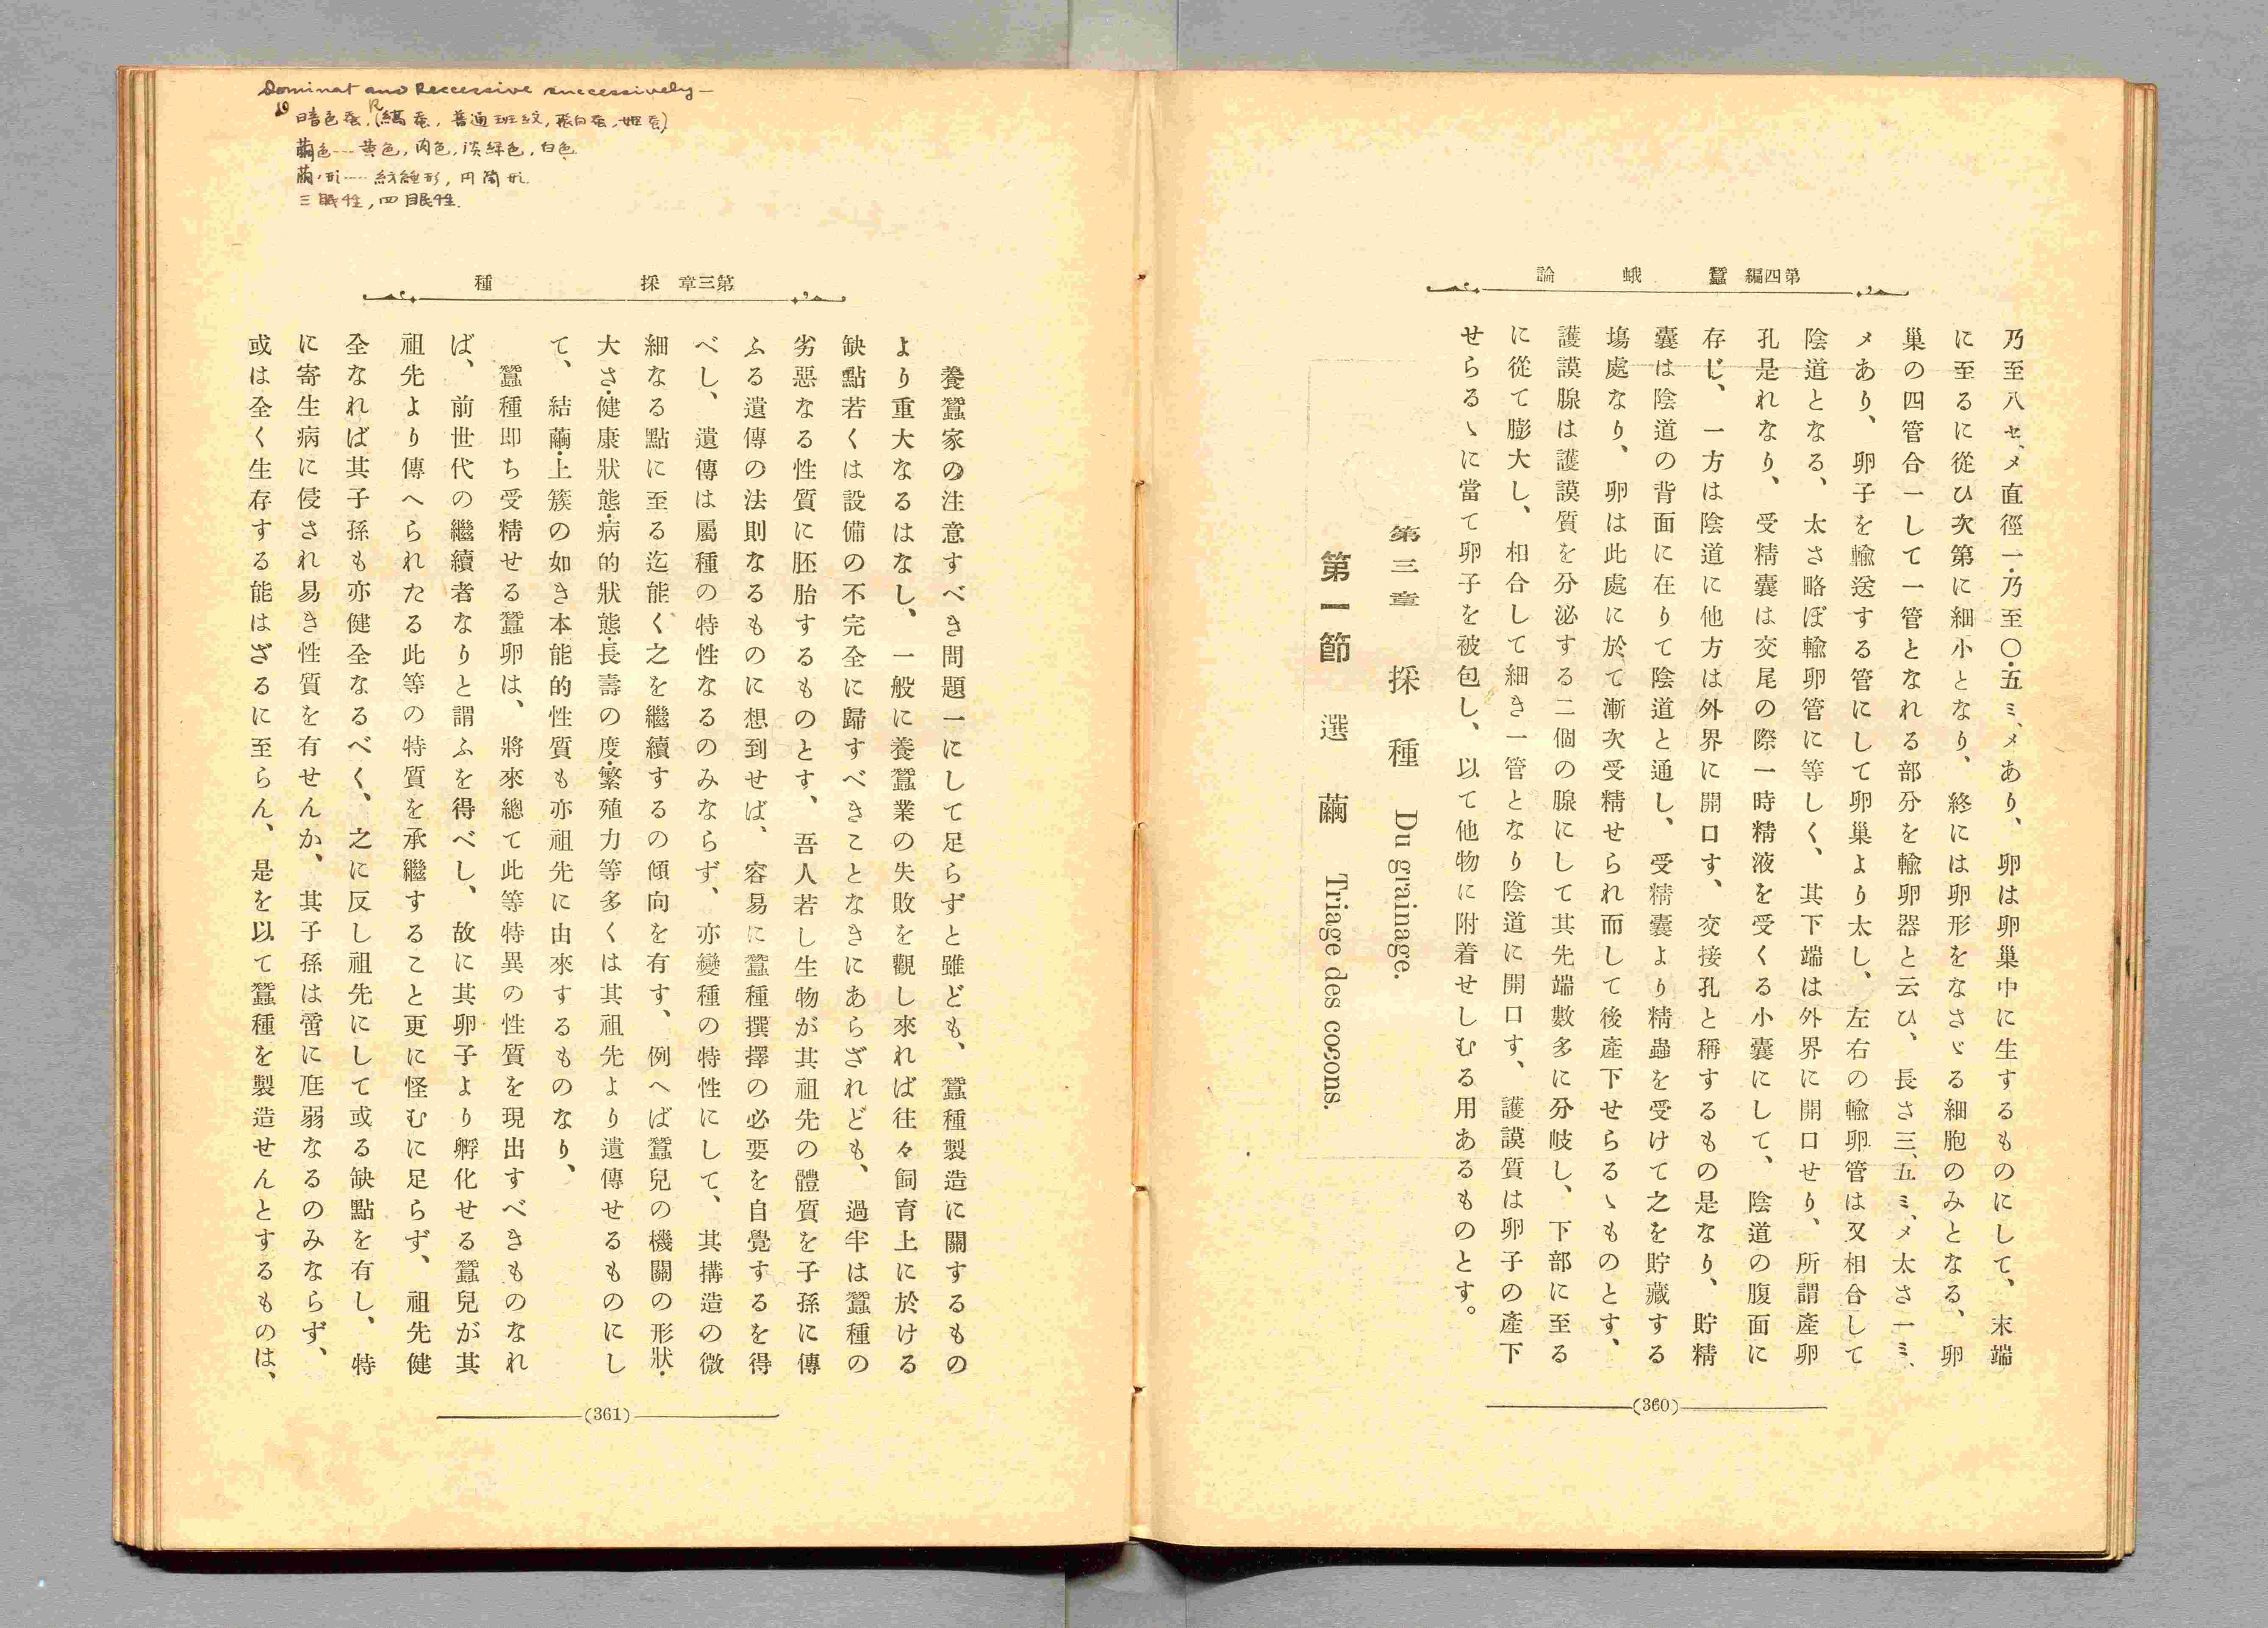 第四編 蠶蛾論
乃至八セ、メ直徑一・乃至〇・五ミ、メあり、卵は卵巢中に生するものにして、末端
に至るに從ひ次第に細小となり、終には卵形をなさゞる細胞のみとなる、卵
巢の四管合一して一管となれる部分を輸卵器と云ひ、長さ三、五ミ、メ太さ一ミ、
メあり、卵子を輸送する管にして卵巢より太し、左右の輸卵管は又相合して
陰道となる、太さ略ぼ輸卵管に等しく、其下端は外界に開口せり、所謂產卵
孔是れなり、受精囊は交尾の際一時精液を受くる小囊にして、陰道の腹面に
存じ、一方は陰道に他方は外界に開口す、交接孔と稱するもの是なり、貯精
囊は陰道の背面に在りて陰道と通し、受精囊より精蟲を受けて之を貯藏する
塲處なり、卵は此處に於て漸次受精せられ而して後產下せらるゝものとす、
護謨腺は護謨質を分泌する二個の腺にして其先端數多に分岐し、下部に至る
に從て膨大し、相合して細き一管となり陰道に開口す、護謨質は卵子の產下
せらるゝに當て卵子を被包し、以て他物に附着せしむる用あるものとす。
第三章 採種 Du grainage.
第一節 選繭 Triage des cocons.
(360)
Dominat and Reccessive successively—
D 暗色蚕, R(縞蚕, 普通班紋, 飛白蚕, 姫蚕)
繭色---黄色, 肉色, 淡緑色, 白色
繭ノ形----紡錘形, 円筒形
三眠性, 四眠性.
第三章 採種
養蠶家の注意すべき問題一にして足らずと雖ども、蠶種製造に關するもの
より重大なるはなし、一般に養蠶業の失敗を觀し來れば往々飼育上に於ける
缺點若くは設備の不完全に歸すべきことなきにあらざれども、過半は蠶種の
劣惡なる性質に胚胎するものとす、吾人若し生物が其祖先の體質を子孫に傳
ふる遺傳の法則なるものに想到せば、容易に蠶種撰擇の必要を自覺するを得
べし、遺傳は屬種の特性なるのみならず、亦變種の特性にして、其搆造の微
細なる點に至る迄能く之を繼續するの傾向を有す、例へば蠶兒の機關の形狀・
大さ・健康狀態・病的狀態・長壽の度・繁殖力等多くは其祖先より遺傳せるものにし
て、結繭・上簇の如き本能的性質も亦祖先に由來するものなり、
蠶種即ち受精せる蠶卵は、將來總て此等特異の性質を現出すべきものなれ
ば、前世代の繼續者なりと謂ふを得べし、故に其卵子より孵化せる蠶兒が其
祖先より傳へられたる此等の特質を承繼すること更に怪むに足らず、祖先健
全なれば其子孫も亦健全なるべく、之に反し祖先にして或る缺點を有し、特
に寄生病に侵され易き性質を有せんか、其子孫は啻に尫弱なるのみならず、
或は全く生存する能はざるに至らん、是を以て蠶種を製造せんとするものは、
(361)